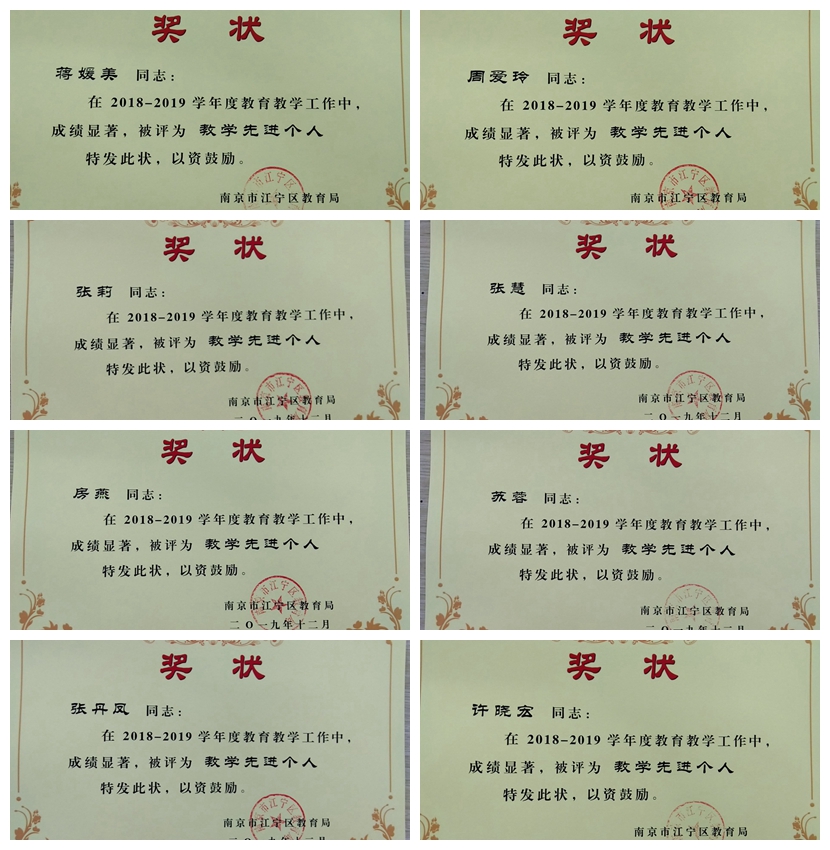 奖 状
蒋媛美 同志:
在 2018-2019 学年度教育教学工作中,
成绩显著, 被评为 教学先进个人
特发此状, 以资鼓励。
南京市江宁区教育局
奖 状
周爱玲 同志:
在 2018-2019 学年度教育教学工作中,
成绩显著, 被评为 教学先进个人
特发此状, 以资鼓励。
南京市江宁区教育局
奖 状
张莉 同志:
在 2018-2019 学年度教育教学工作中,
成绩显著, 被评为 教学先进个人
特发此状, 以资鼓励。
南京市江宁区教育局
二〇一九年十二月
奖 状
张慧 同志:
在 2018-2019 学年度教育教学工作中,
成绩显著, 被评为 教学先进个人
特发此状, 以资鼓励。
南京市江宁区教育局
二〇一九年十二月
奖 状
房燕 同志:
在 2018-2019 学年度教育教学工作中,
成绩显著, 被评为 教学先进个人
特发此状, 以资鼓励。
南京市江宁区教育局
二〇一九年十二月
奖 状
苏蓉 同志:
在 2018-2019 学年度教育教学工作中,
成绩显著, 被评为 教学先进个人
特发此状, 以资鼓励。
南京市江宁区教育局
二〇一九年十二月
奖 状
张丹凤 同志:
在 2018-2019 学年度教育教学工作中,
成绩显著, 被评为 教学先进个人
特发此状, 以资鼓励。
南京市江宁区教育局
二〇一九年十二月
奖 状
许晓宏 同志:
在 2018-2019 学年度教育教学工作中,
成绩显著, 被评为 教学先进个人
特发此状, 以资鼓励。
南京市江宁区教育局